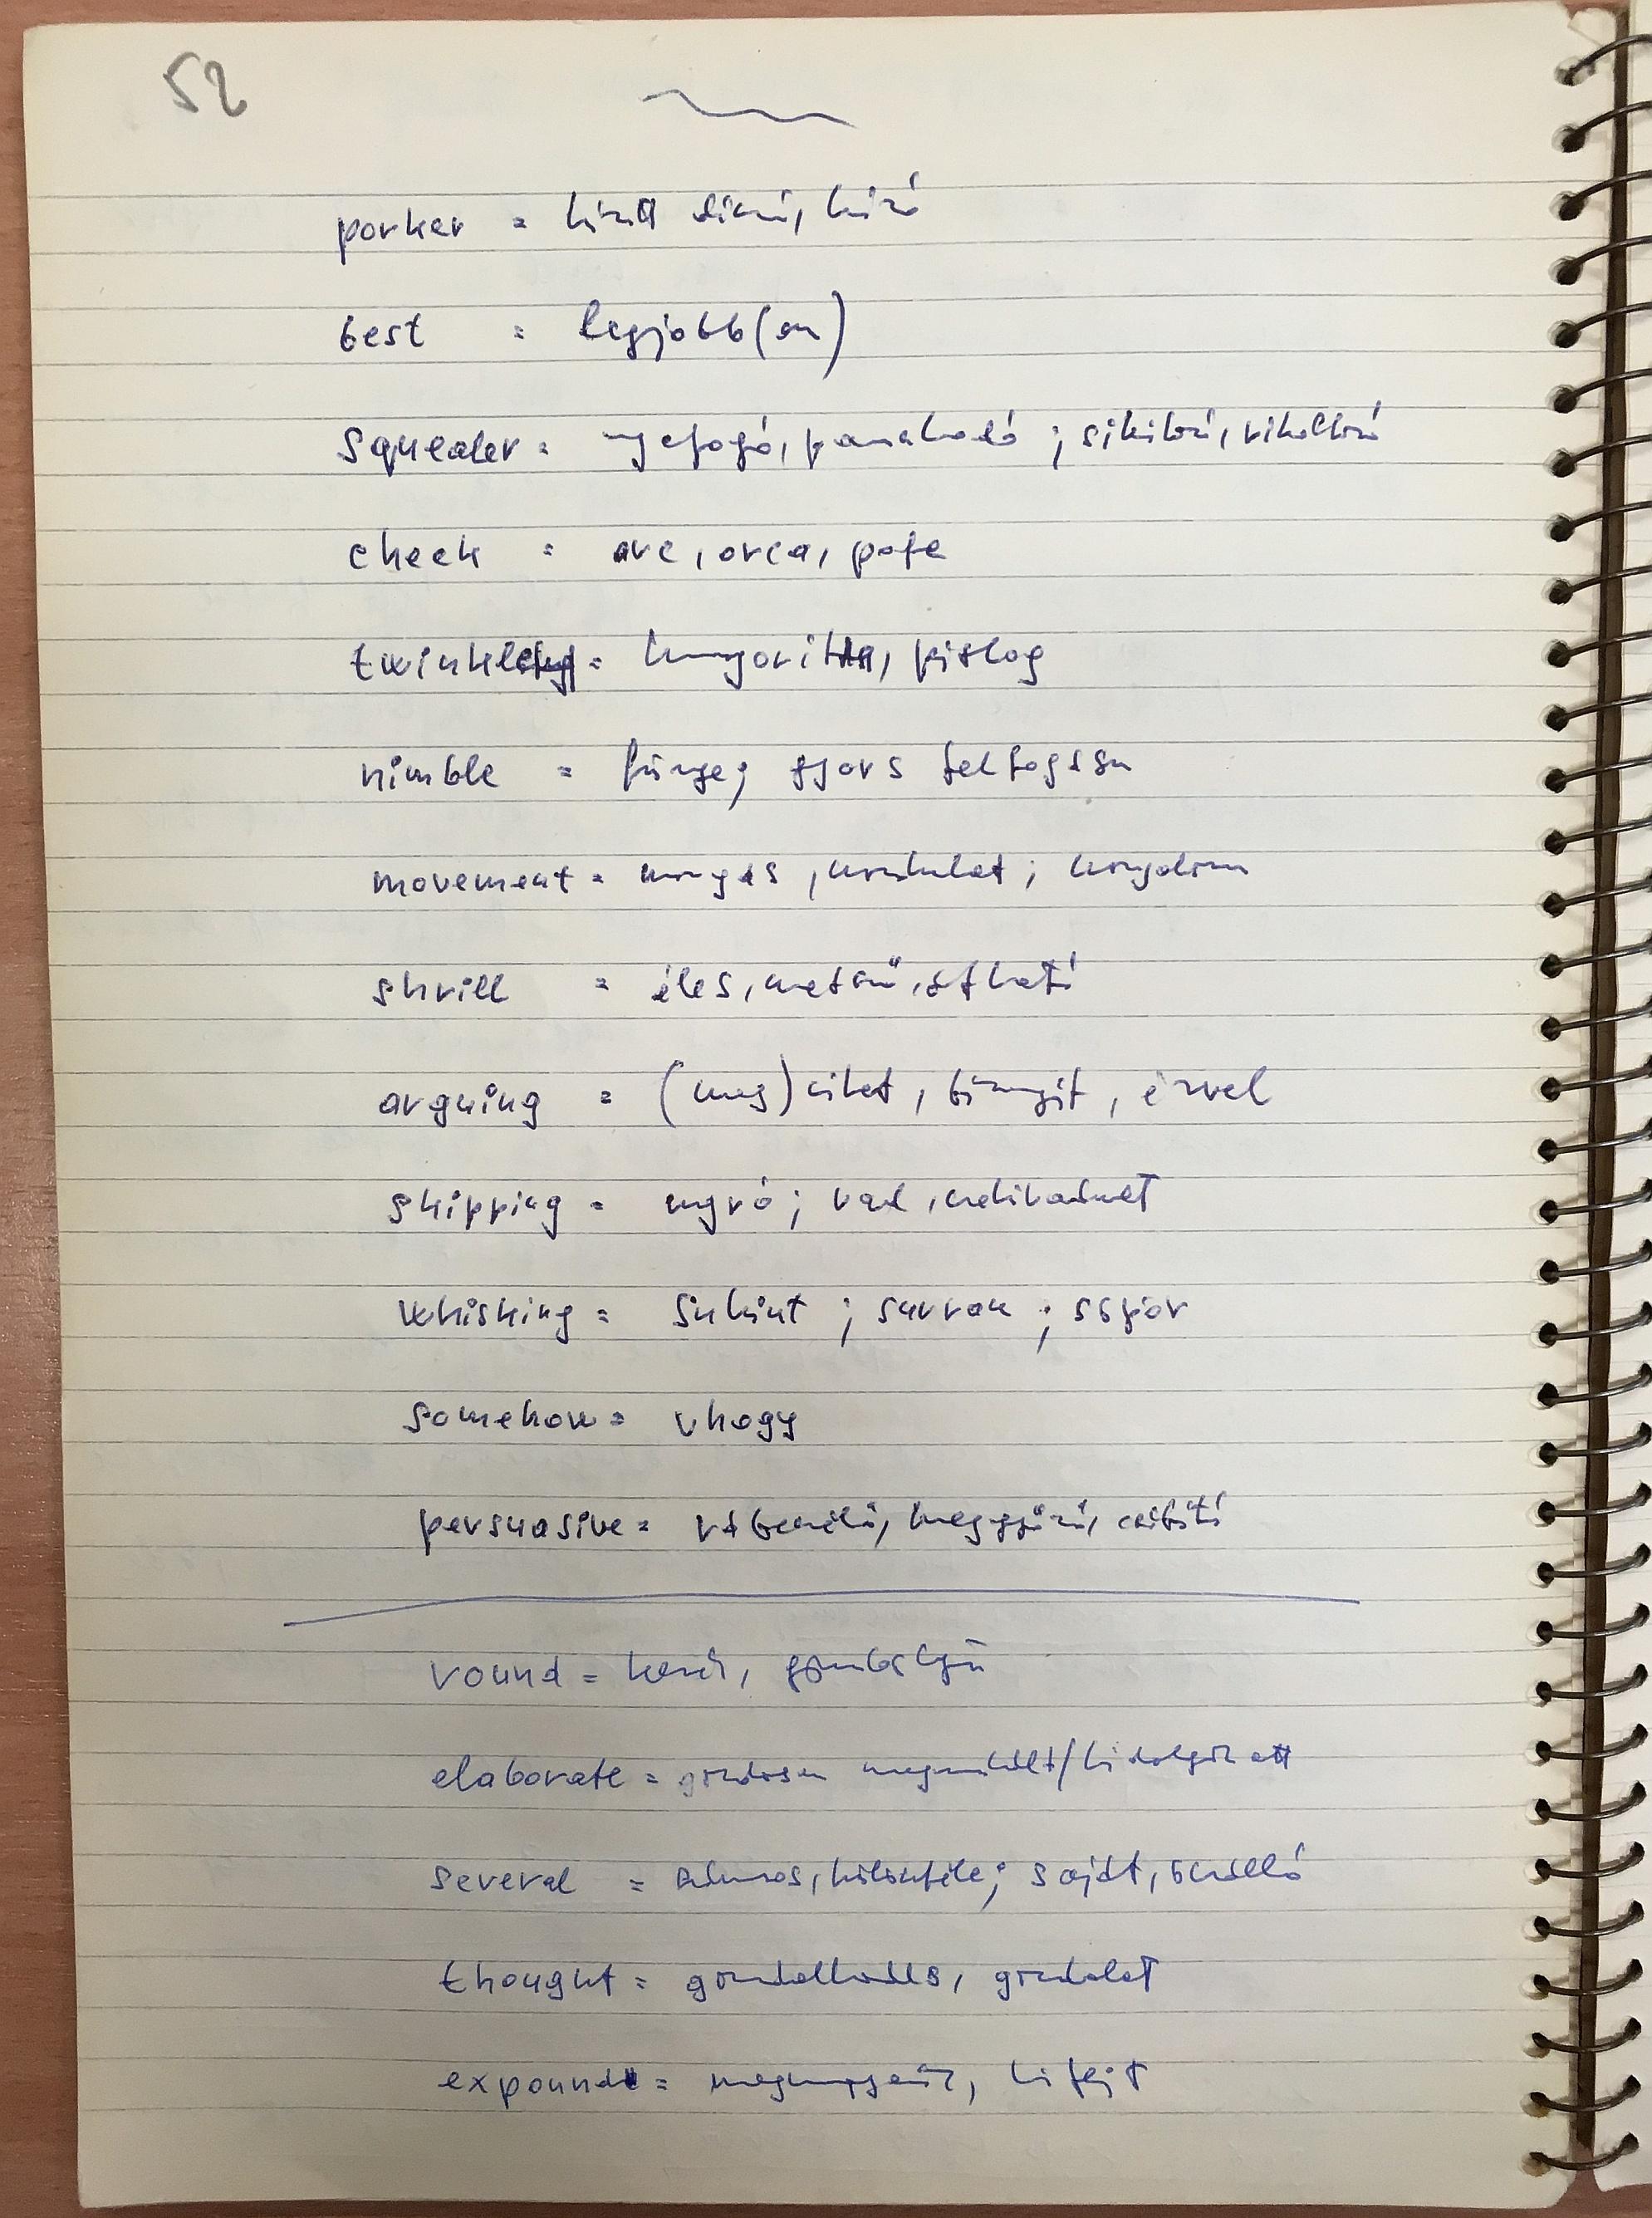 52
porker = hízott disznó, hízó
best = legjobb(an)
Squealer = nyafogó, panaszkodó ; sikító, rikoltozó
cheek = arc, orca, pofa
twinkle = hunyorít, pislog
nimble = fürge; gyors felfogású
movement = mozgás, mozdulat ; mozgalom
shrill = éles, metsző, átható
arguing = (meg)vitat, bizonyít, érvel
skipping = ugró ;
whisking = suhint ; surran ; söpör
somehow = vhogy
persuasive = rábeszélő, meggyőző,
round = kerek, gömbölyű
elaborate = gondosan megmunkált/kidolgozott
several = számos, különféle; saját, önálló
thought = gondolkodás, gondolat
expound = megmagyaráz, kifejt